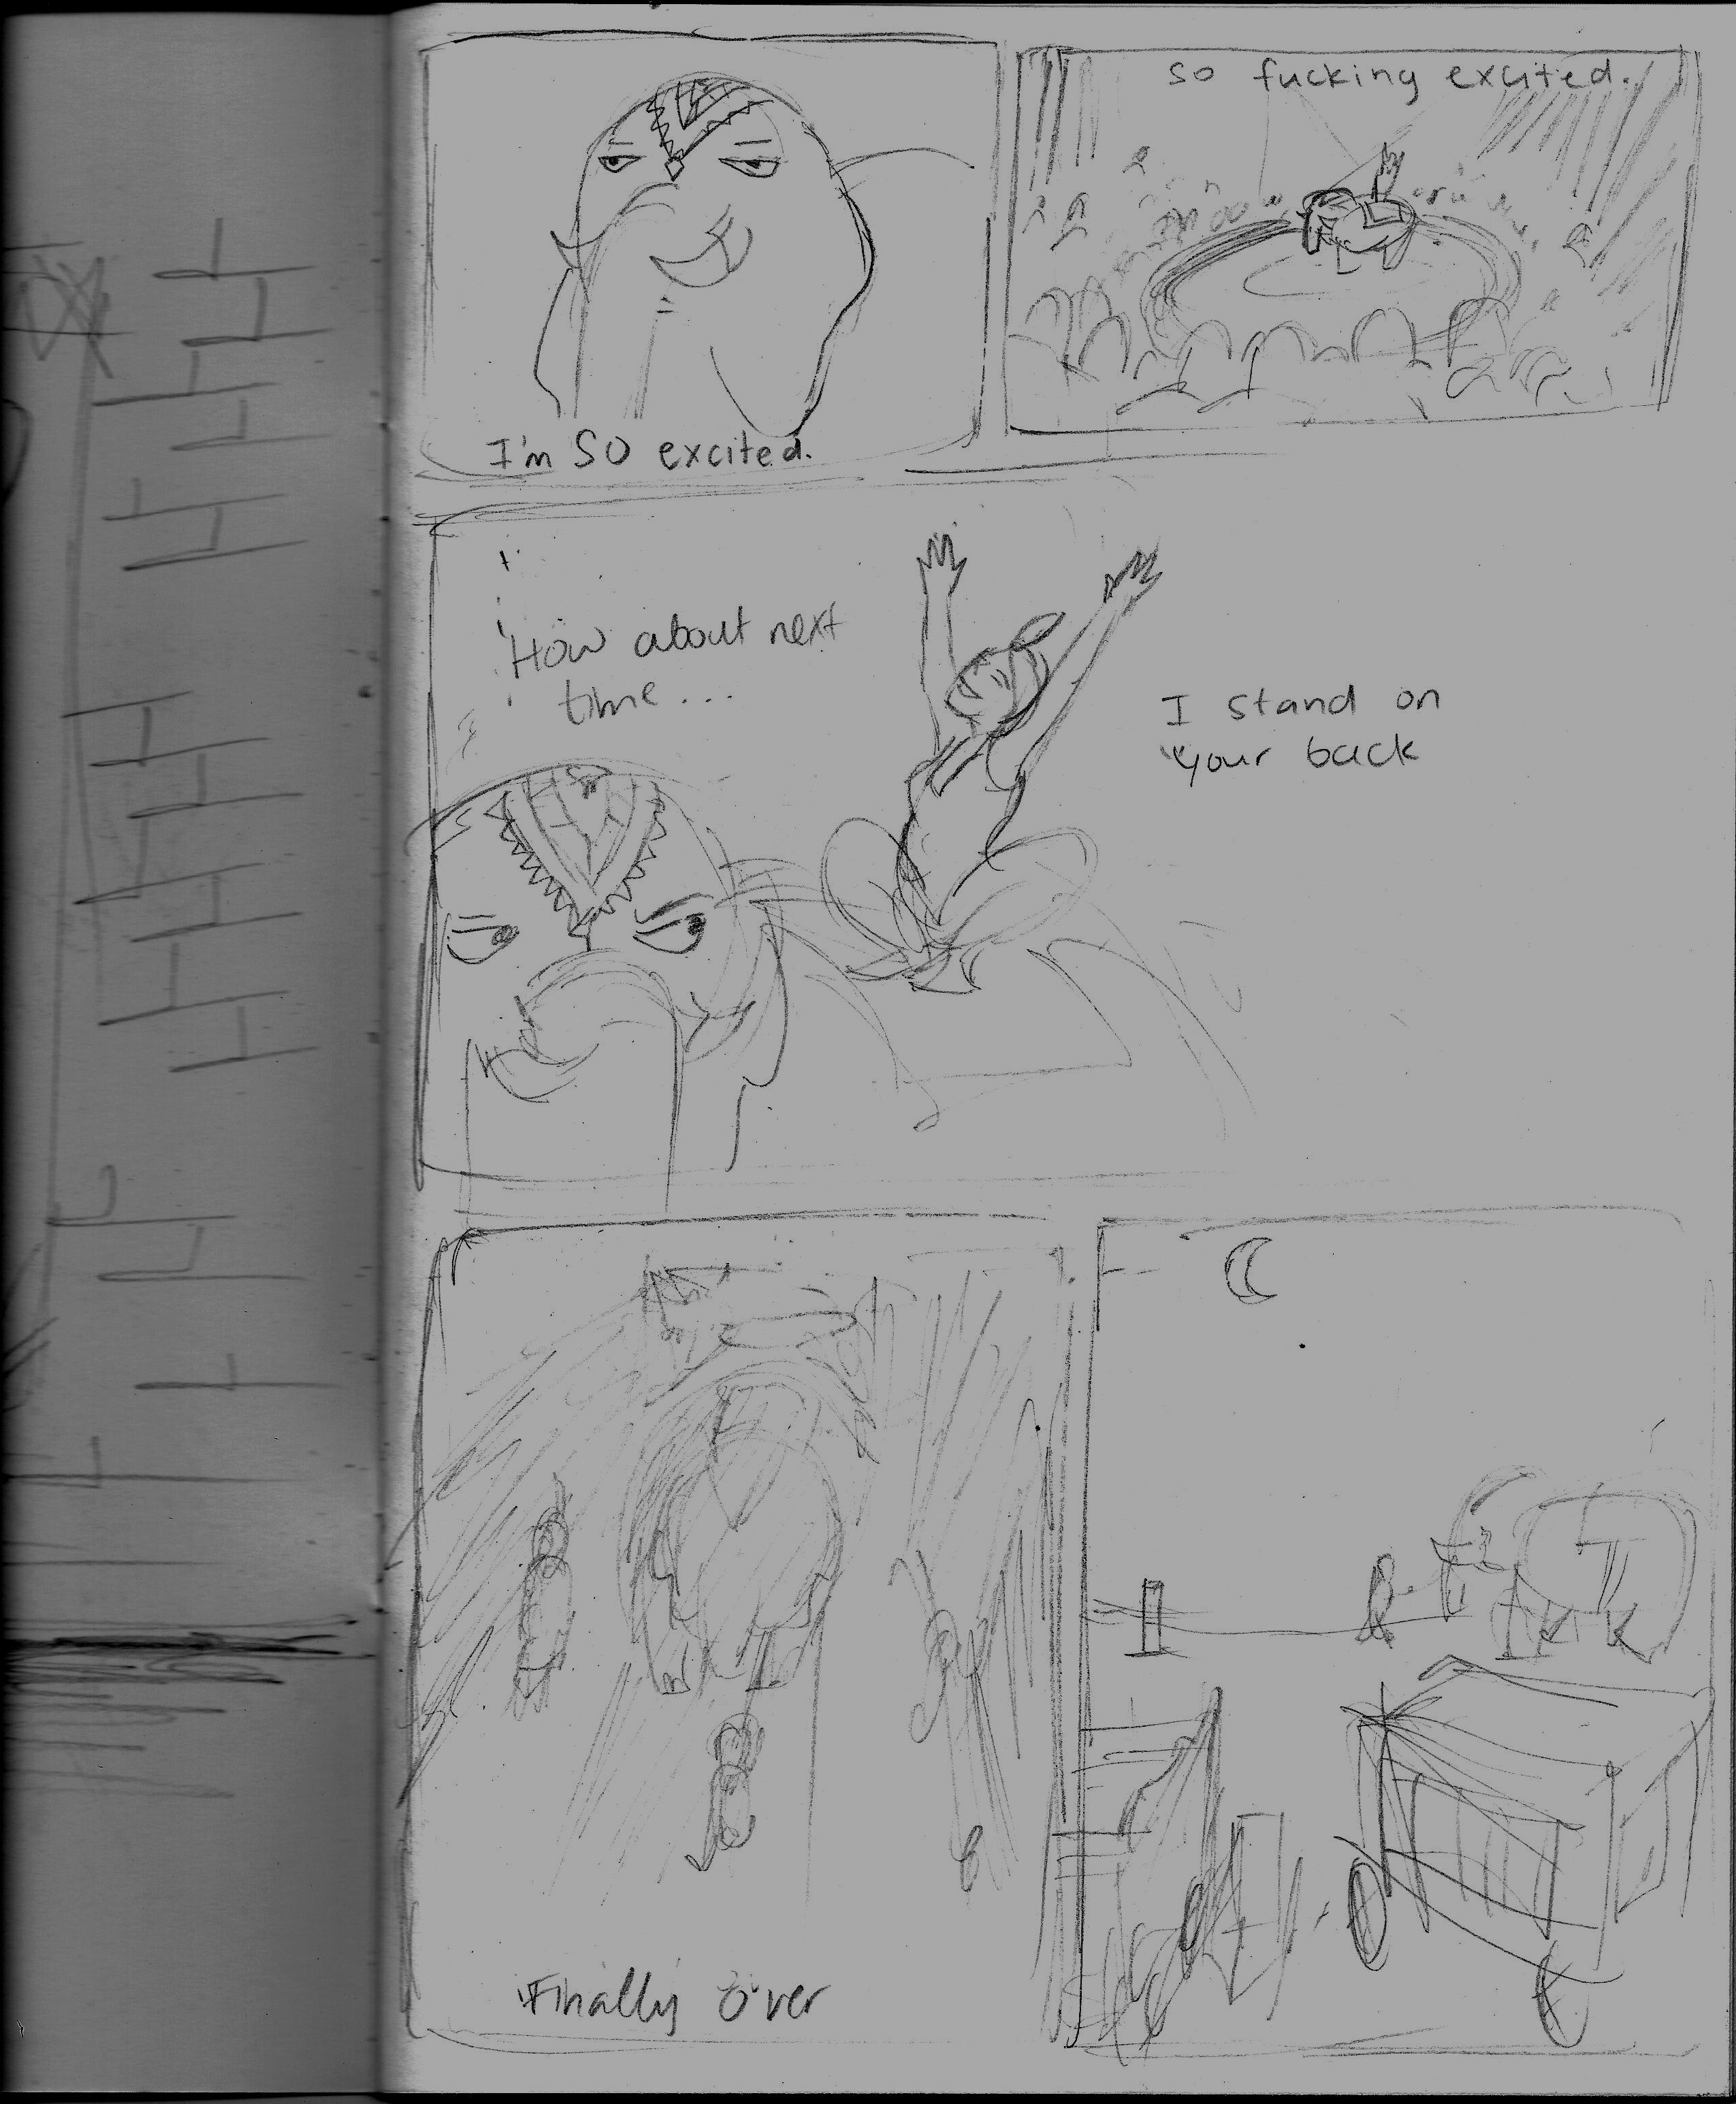 I'm SO excited.
so fucking excited.
How about next
time...
I stand on
your back
Finally over